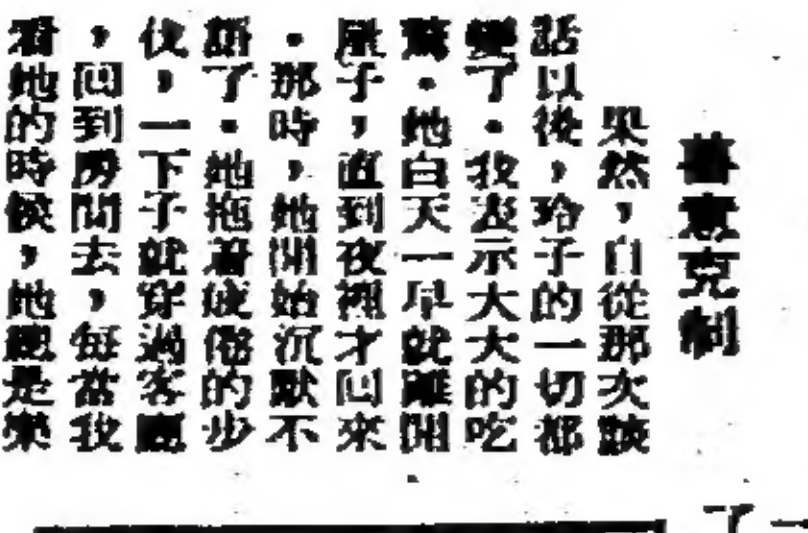 善意克制
果然，自從那次談
話以後，玲子的一切都
變了。我表示大大的吃
驚。她白天一早就離開
屋子，直到夜裡才回來
。那時，她開始沉默不
語了。她拖着疲倦的步
伐，一下子就穿過客廳
，回到房間去，每當我
看她的時候，她總是樂
了一